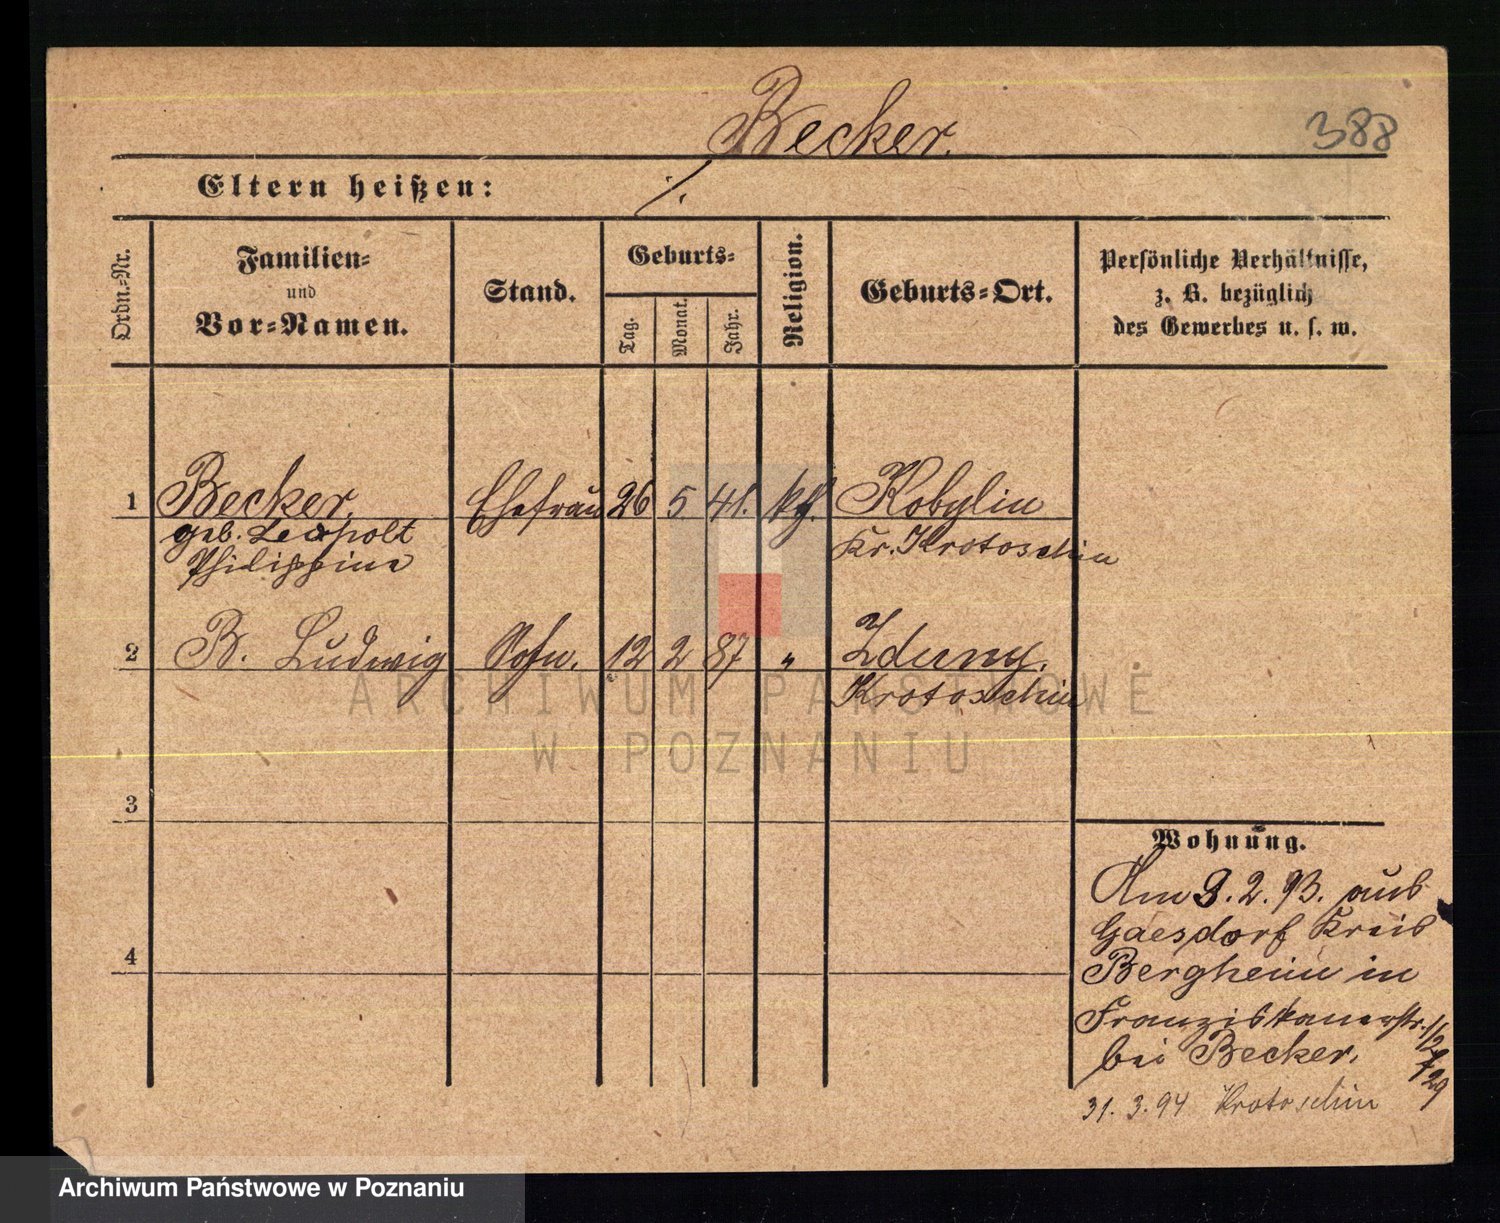 Becker.
388
Eltern heißen: ·/.
Ordn.-Nr.
Familien-
und
Vor-Namen.
Stand.
Geburts-
Tag.
Monat.
Jahr.
Religion.
Geburts-Ort.
Persönliche Verhältnisse,
z. B. bezüglich
des Gewerbes u. s. w.
1 Becker, Ehefrau 26 5 41. kth. Kobylin
geb. Leopolt Kr. Krotoschin
Philippine
2 B. Ludwig Sohn. 12 2 87 " Zduny.
Krotoschin
ARCHIWUM PAŃSTWOWE
W POZNANIU
3
4
Wohnung.
Am 3.2.93. aus
Gaesdorf Kreis
Bergheim in
Franziskanerstr.
bei Becker.
31.3.94 Krotoschin
Archiwum Państwowe w Poznaniu